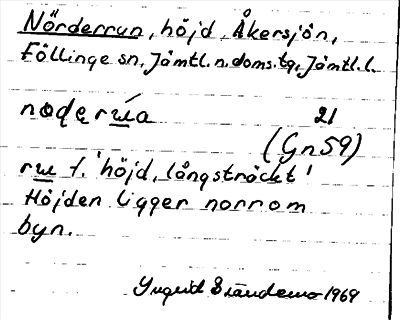 Nörderrun, höjd, Åkersjön,
Föllinge sn, Jämtl. n. doms. tg, Jämtl. l.
21
(Gn 59)
f. 'höjd, långsträckt'
Höjden ligger norr om
byn.
1969